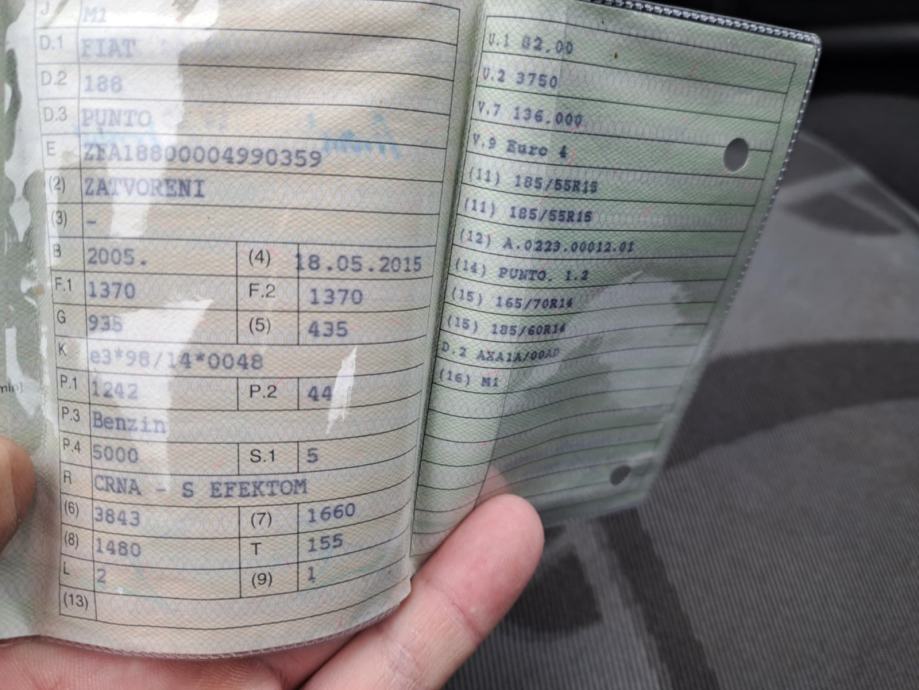 J M1
D.1 FIAT
D.2 188
D.3 PUNTO
E ZFA18800004990359
(2) ZATVORENI
(3) -
B 2005. (4) 18.05.2015
F.1 1370 F.2 1370
G 935 (5) 435
K e3*98/14*0048
P.1 1242 P.2 44
P.3 Benzin
P.4 5000 S.1 5
R CRNA - S EFEKTOM
(6) 3843 (7) 1660
(8) 1480 T 155
L 2 (9) 1
(13)
U.1 82.00
U.2 3750
V.7 136.000
V.9 Euro 4
(11) 185/55R15
(11) 185/55R15
(12) A.0223.00012.01
(14) PUNTO. 1.2
(15) 165/70R14
(15) 185/60R14
D.2 AXA1A/00AD
(16) M1